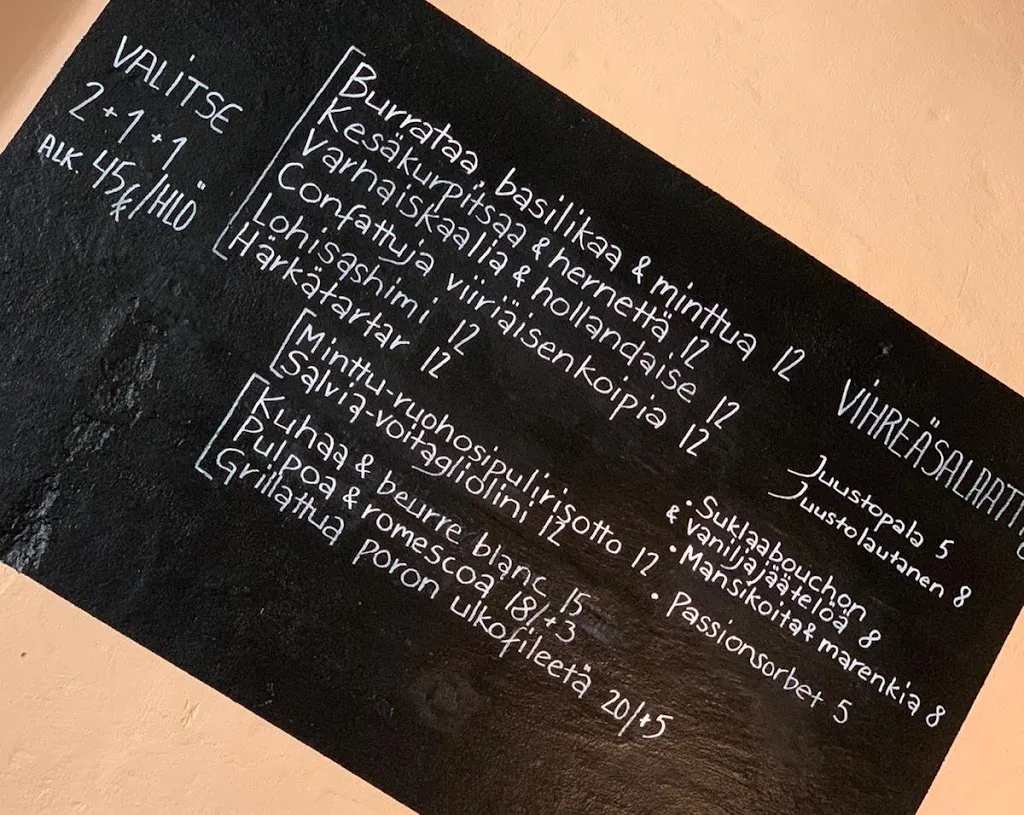 VALITSE
2+1+1
ALK. 45€/HLÖ
Burrataa, basilikaa & minttua 12
Kesäkurpitsaa & hernettä 12
Varhaiskaalia & hollandaise 12
Confattuja viiriäisenkoipia 12
Lohisashimi 12
Härkätartar 12
Minttu-ruohosipulirisotto 12
Salvia-voitagliolini 12
Kuhaa & beurre blanc 15
Pulpoa & romescoa 18/+3
Grillattua poron ulkofileetä 20/+5
VIHREÄSALAATTI
Juustopala 5
Juustolautanen 8
• Suklaabouchon
& vaniljajäätelöä 8
• Mansikoita & marenkia 8
• Passionsorbet 5